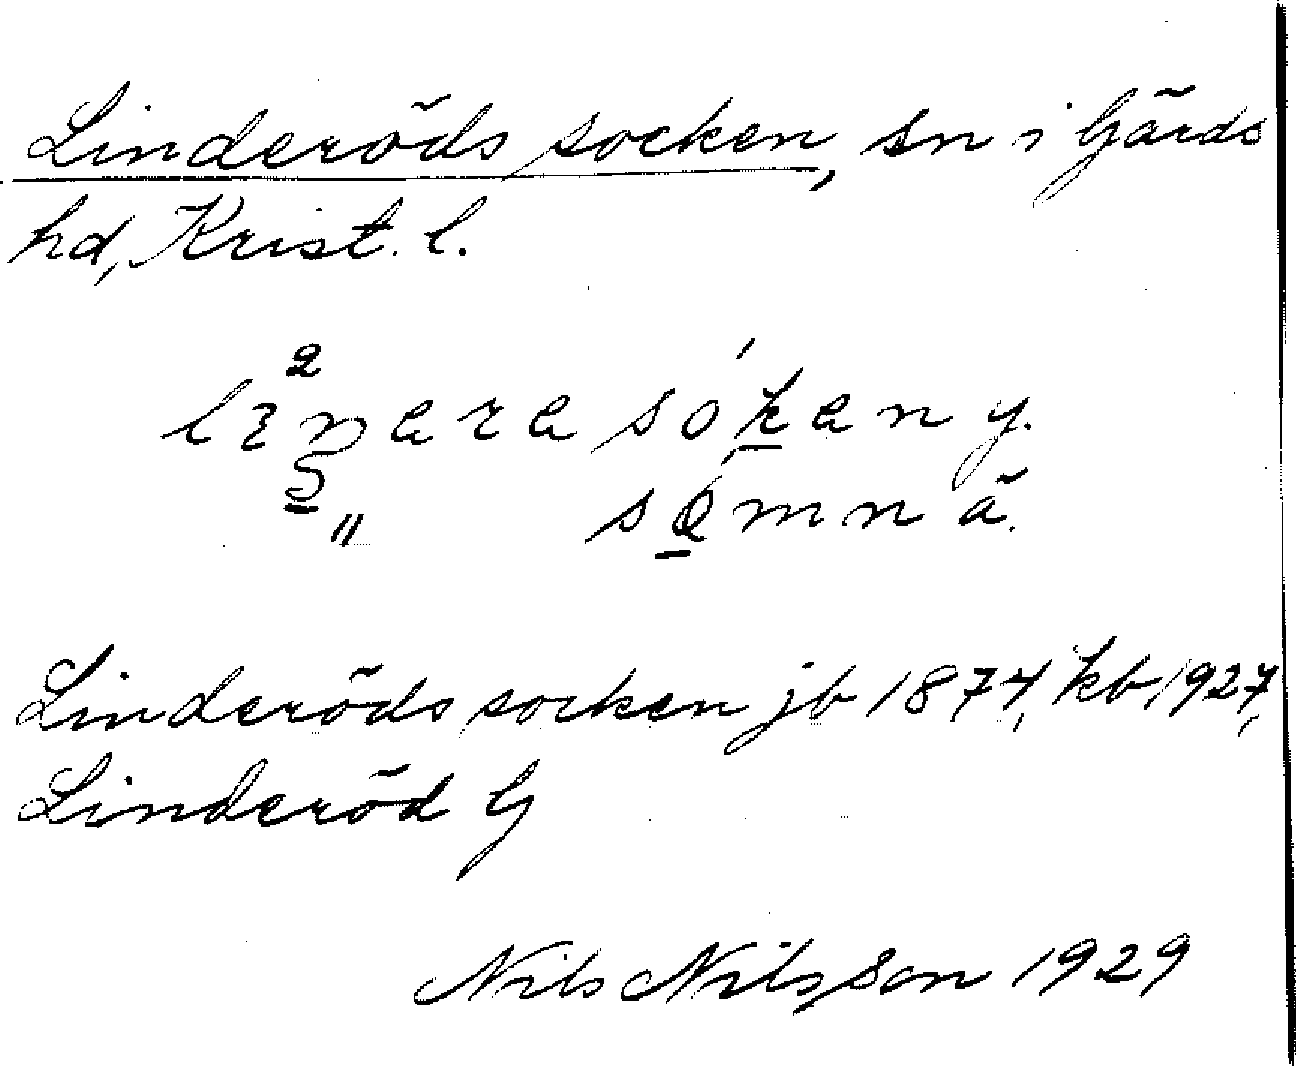 Linderöds socken, sn i Gärds
hd, Krist. l.
Linderöds socken jb 1874, kb 1927,
Linderöd G
Nils Nilsson 1929